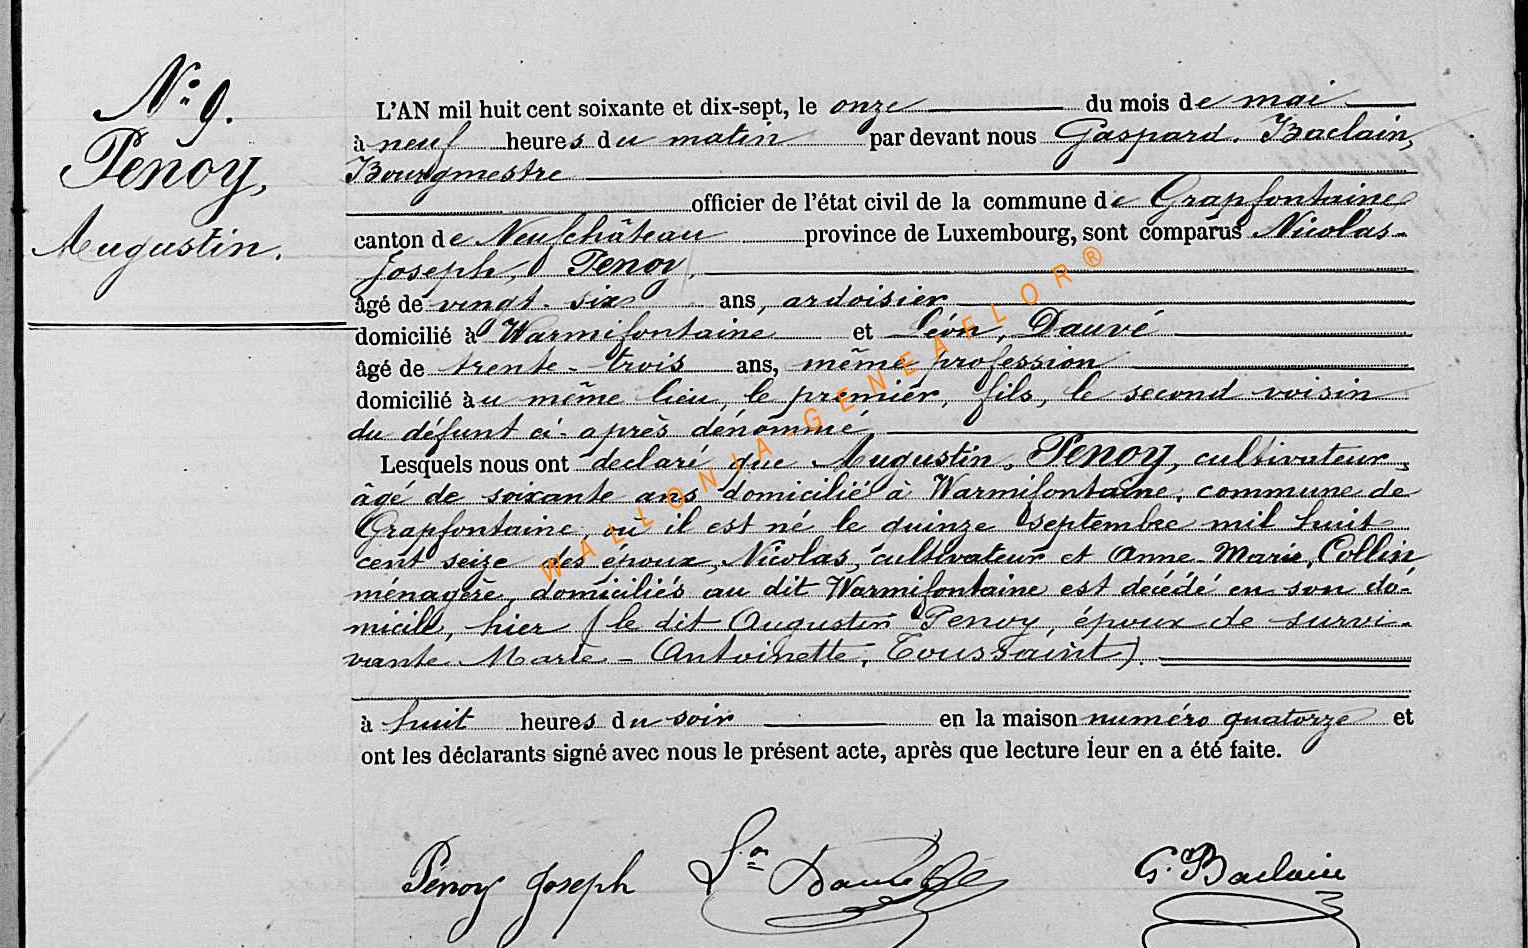 N° 9.
Penoy,
Augustin.
L'AN mil huit cent soixante et dix-sept, le onze du mois de mai
à neuf heures du matin par devant nous Gaspard, Baclain,
Bourgmestre
officier de l'état civil de la commune de Grapfontaine
canton de Neufchâteau province de Luxembourg, sont comparus Nicolas-
Joseph, Penoy,
âgé de vingt-six ans, ardoisier
domicilié à Warmifontaine et Léon, Dauvé
âgé de trente-trois ans, même profession
domicilié au même lieu, le premier, fils, le second voisin
du défunt ci-après dénommé,
Lesquels nous ont déclaré que Augustin, Penoy, cultivateur,
âgé de soixante ans domicilié à Warmifontaine, commune de
Grapfontaine, où il est né le quinze septembre mil huit
cent seize des époux, Nicolas, cultivateur et Anne-Marie, Collin
ménagère, domiciliés au dit Warmifontaine est décédé en son do-
micile, hier (le dit Augustin Penoy, époux de survi-
vante Marie-Antoinette, Toussaint).
à huit heures du soir en la maison numéro quatorze et
ont les déclarants signé avec nous le présent acte, après que lecture leur en a été faite.
Penoy Joseph Ln Dauvé G. Baclain
WALLONIA-GENEAFLOR®